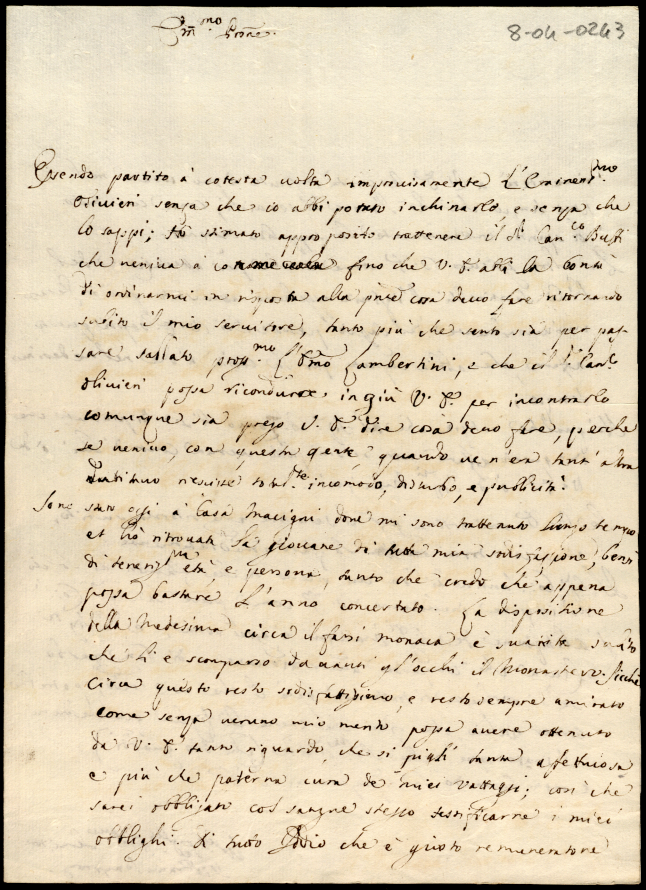 8-04-0243
Em.mo Prōne.
Essendo partito à cotesta volta improvisamente L'Eminent.mo
Olivieri senza che io abbi potuto inchinarlo, e senza che
lo sappi; hò stimato approposito trattenere il S.r Can.co Bussi
che veniva à co fino che V. E. abbi la bontà
di ordinarmi in risposta alla pñte cosa devo fare ritornando
subito il mio servitore, tanto più che sento sia per pas-
sare sabbato pross.mo Lambertini, e che il S. Card.
Olivieri possa ricondurre in giù V. E. per incontrarlo
comunque sia prego V. E. dire cosa devo fare, perche
se venivo, con questa gente, quando ve n'era tant'altra
riescisse total.te incomodo, disturbo, e publicità.
Sono stato oggi à Casa Macigni dove mi sono trattenuto lungo tempo
et hò ritrovata la giovane di tutta mia sodisfazione, bensì
di teneriss.ma età, e persona, tanto che credo che appena
possa bastare l'anno concertato. La dispositione
della Medesima circa il farsi monaca è svanita subito
che li è scomparso davanti gl'occhi il Monastero. Sicchè
circa questo resto sodisfattissimo, e resto sempre amirato
come senza veruno mio merito possa avere ottenuto
da V. E. tanto riguardo, che si pigli tanta affettuosa
e più che paterna cura de miei vattaggi; così che
sarei obbligato col sangue stesso testificarne i miei
obblighi. Di tutto Iddio che è giusto remuneratore